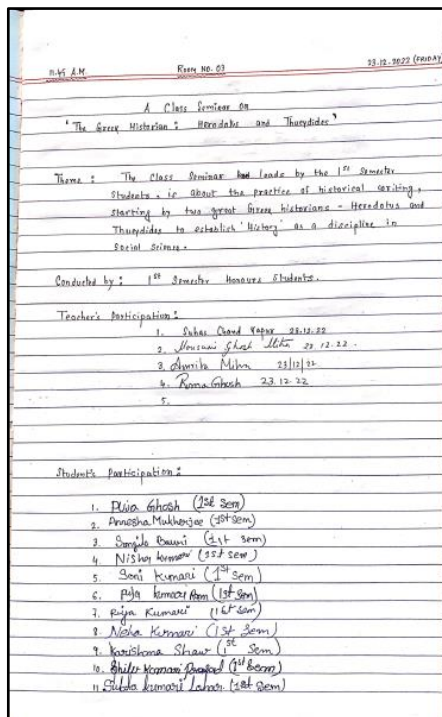 11.45 A.M. Room NO. 03 23.12.2022 (FRIDAY)
A Class Seminar on
'The Greek Historian : Herodatus and Thucydides'
Theme : The Class Seminar leads by the 1st Semester
Students. is about the practice of historical writing,
starting by two great Greek historians - Herodatus and
Thucydides to establish 'History' as a discipline in
Social Science.
Conducted by : 1st Semester Honours Students.
Teacher's Participation :
1. Suhas Chand 23.12.22
2. Mousumi Ghosh Mitra 23.12.22.
3. Amrita Mitra 23/12/22
4. Roma Ghosh 23.12.22
5.
Student's Participation :
1. Puja Ghosh (1st Sem)
2. Annesha Mukherjee (1st sem)
3. Bauri (1st sem)
4. Nisha kumari (1st sem)
5. Soni Kumari (1st Sem)
6. Puja kumari Ram (1st Sem)
7. Riya Kumari (1st sem)
8. Neha Kumari (1st Sem)
9. Karishma Shaw (1st Sem)
10. Kumari Prasad (1st Sem)
11. Kumari (1st Sem)